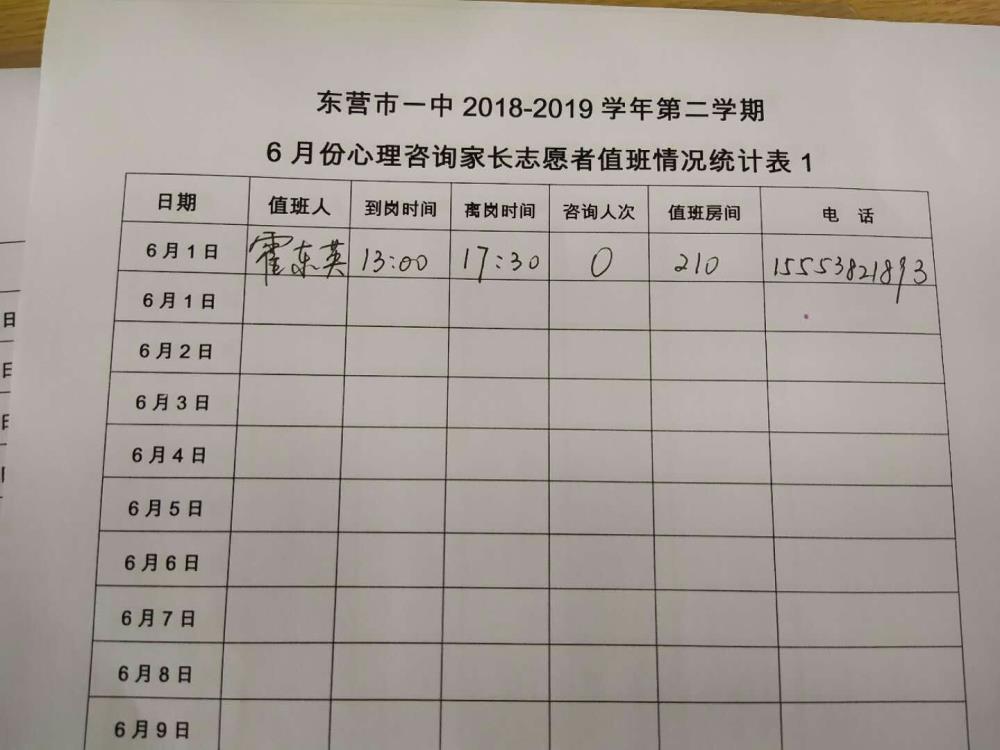 东营市一中 2018-2019 学年第二学期
6 月份心理咨询家长志愿者值班情况统计表 1
日期 值班人 到岗时间 离岗时间 咨询人次 值班房间 电 话
6月1日 霍东英 13:00 17:30 0 210 15553821893
6月1日
6月2日
6月3日
6月4日
6月5日
6月6日
6月7日
6月8日
6月9日
日
日
日